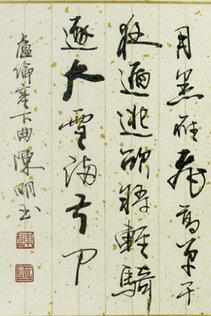 月黑雁飛高單于
夜遁逃欲將輕騎
逐大雪滿弓刀
盧綸塞下曲陳明書